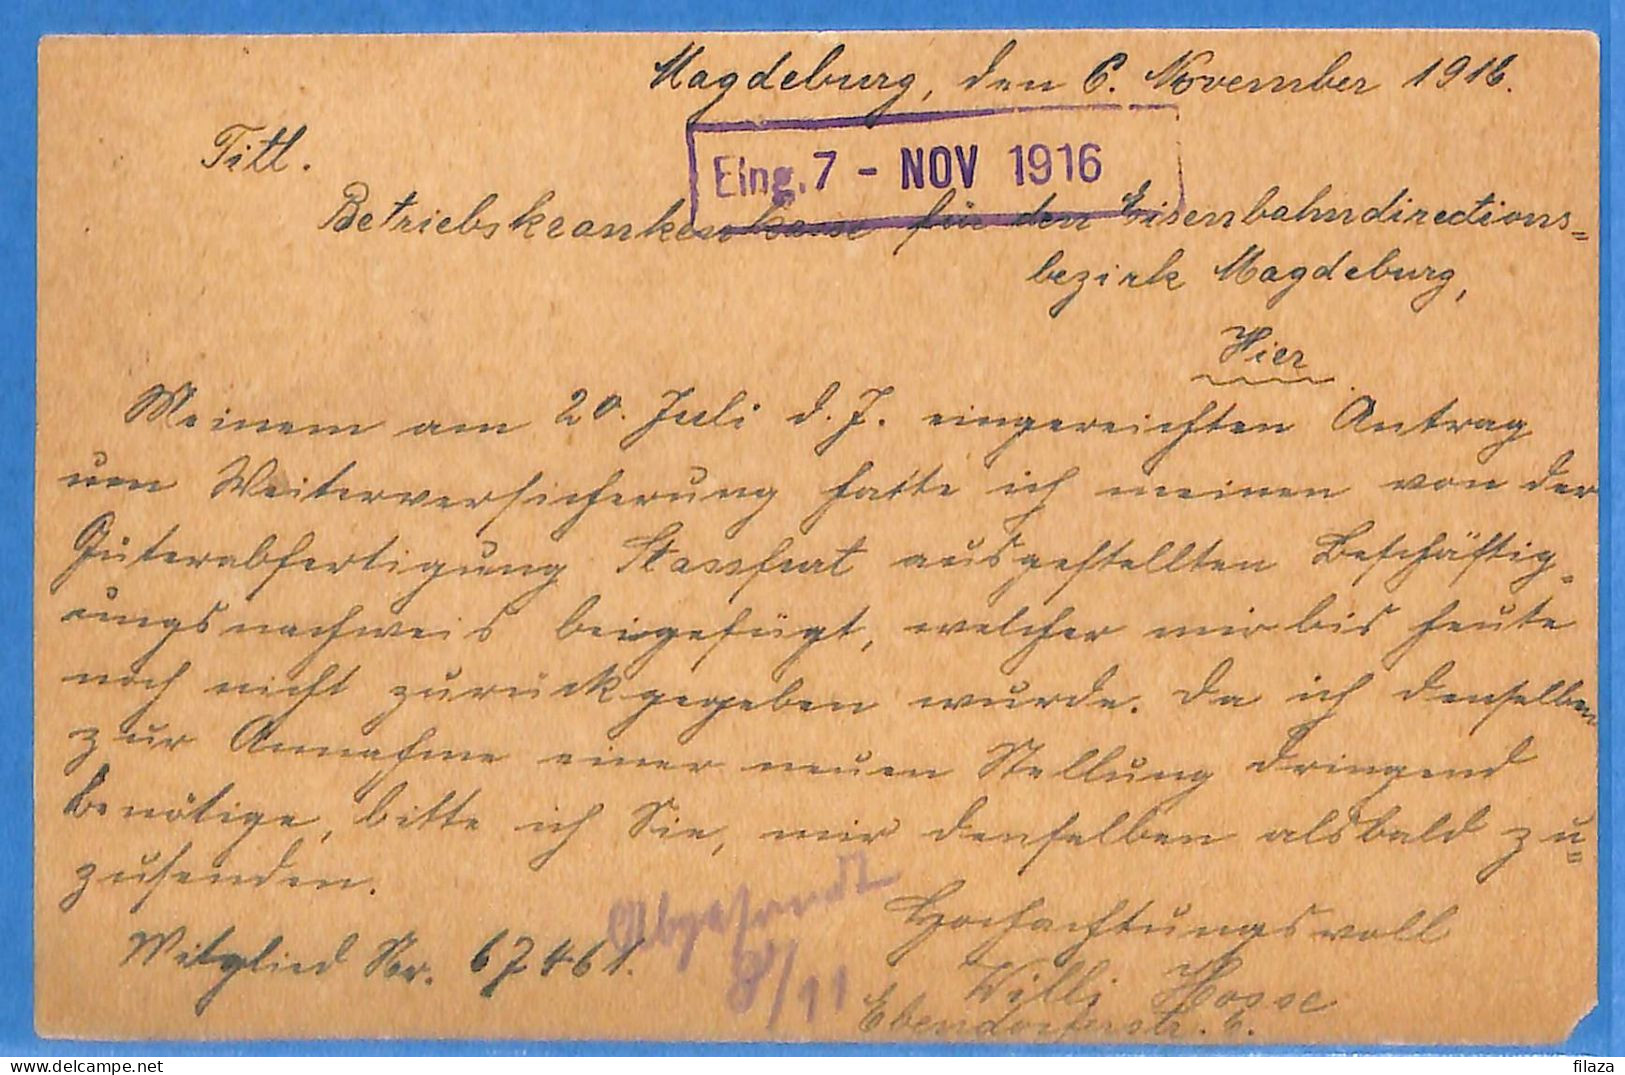 Magdeburg, den 6. November 1916.
Eing. 7 - NOV 1916
Titl.
Betriebskrankenkasse für den Eisenbahndirections=
bezirk Magdeburg,
Hier
Meinem am 20. Juli d. J. eingereichten Antrag
um Weiterversicherung hatte ich meinen von der
Güterabfertigung Stassfurt ausgestellten Beschäftig=
ungsnachweis beigefügt, welcher mir bis heute
noch nicht zurückgegeben wurde. Da ich denselben
zur Annahme einer neuen Stellung dringend
benötige, bitte ich Sie, mir denselben alsbald zu=
zusenden.
Hochachtungsvoll
Mitglied Nr. 67461.
Abgesandt
8/11
Willi Hosse
Ebendorferstr. 6.
filaza